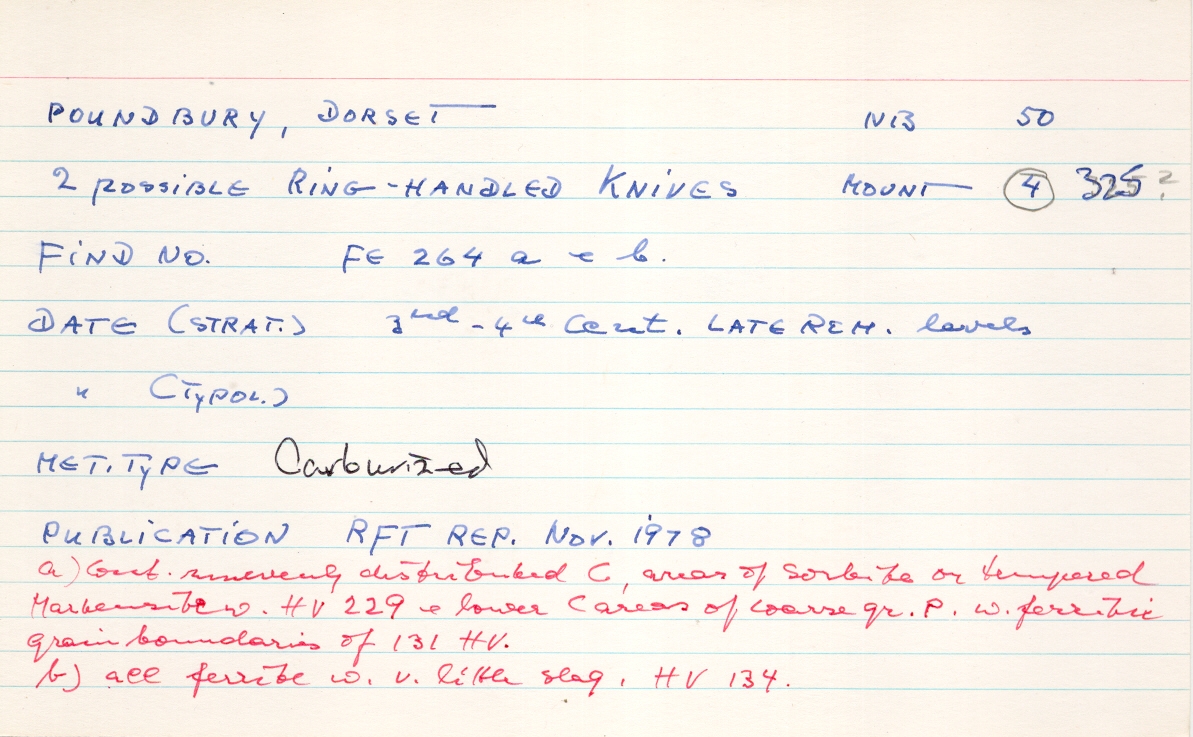 POUNDBURY, DORSET NB 50
2 POSSIBLE RING-HANDLED KNIVES MOUNT 4 325 ?
FIND NO. FE 264 a & b.
DATE (STRAT.) 3rd-4th Cent. LATE ROM. levels
" (TYPOL.)
MET. TYPE Carburized
PUBLICATION RFT REP. NOV. 1978
a) Cont. unevenly distributed C, areas of Sorbite or tempered
Martensite w. HV 229 & lower C areas of coarse gr. P. w. ferritic
grain boundaries of 131 HV.
b) all ferrite w. v. little slag. HV 134.